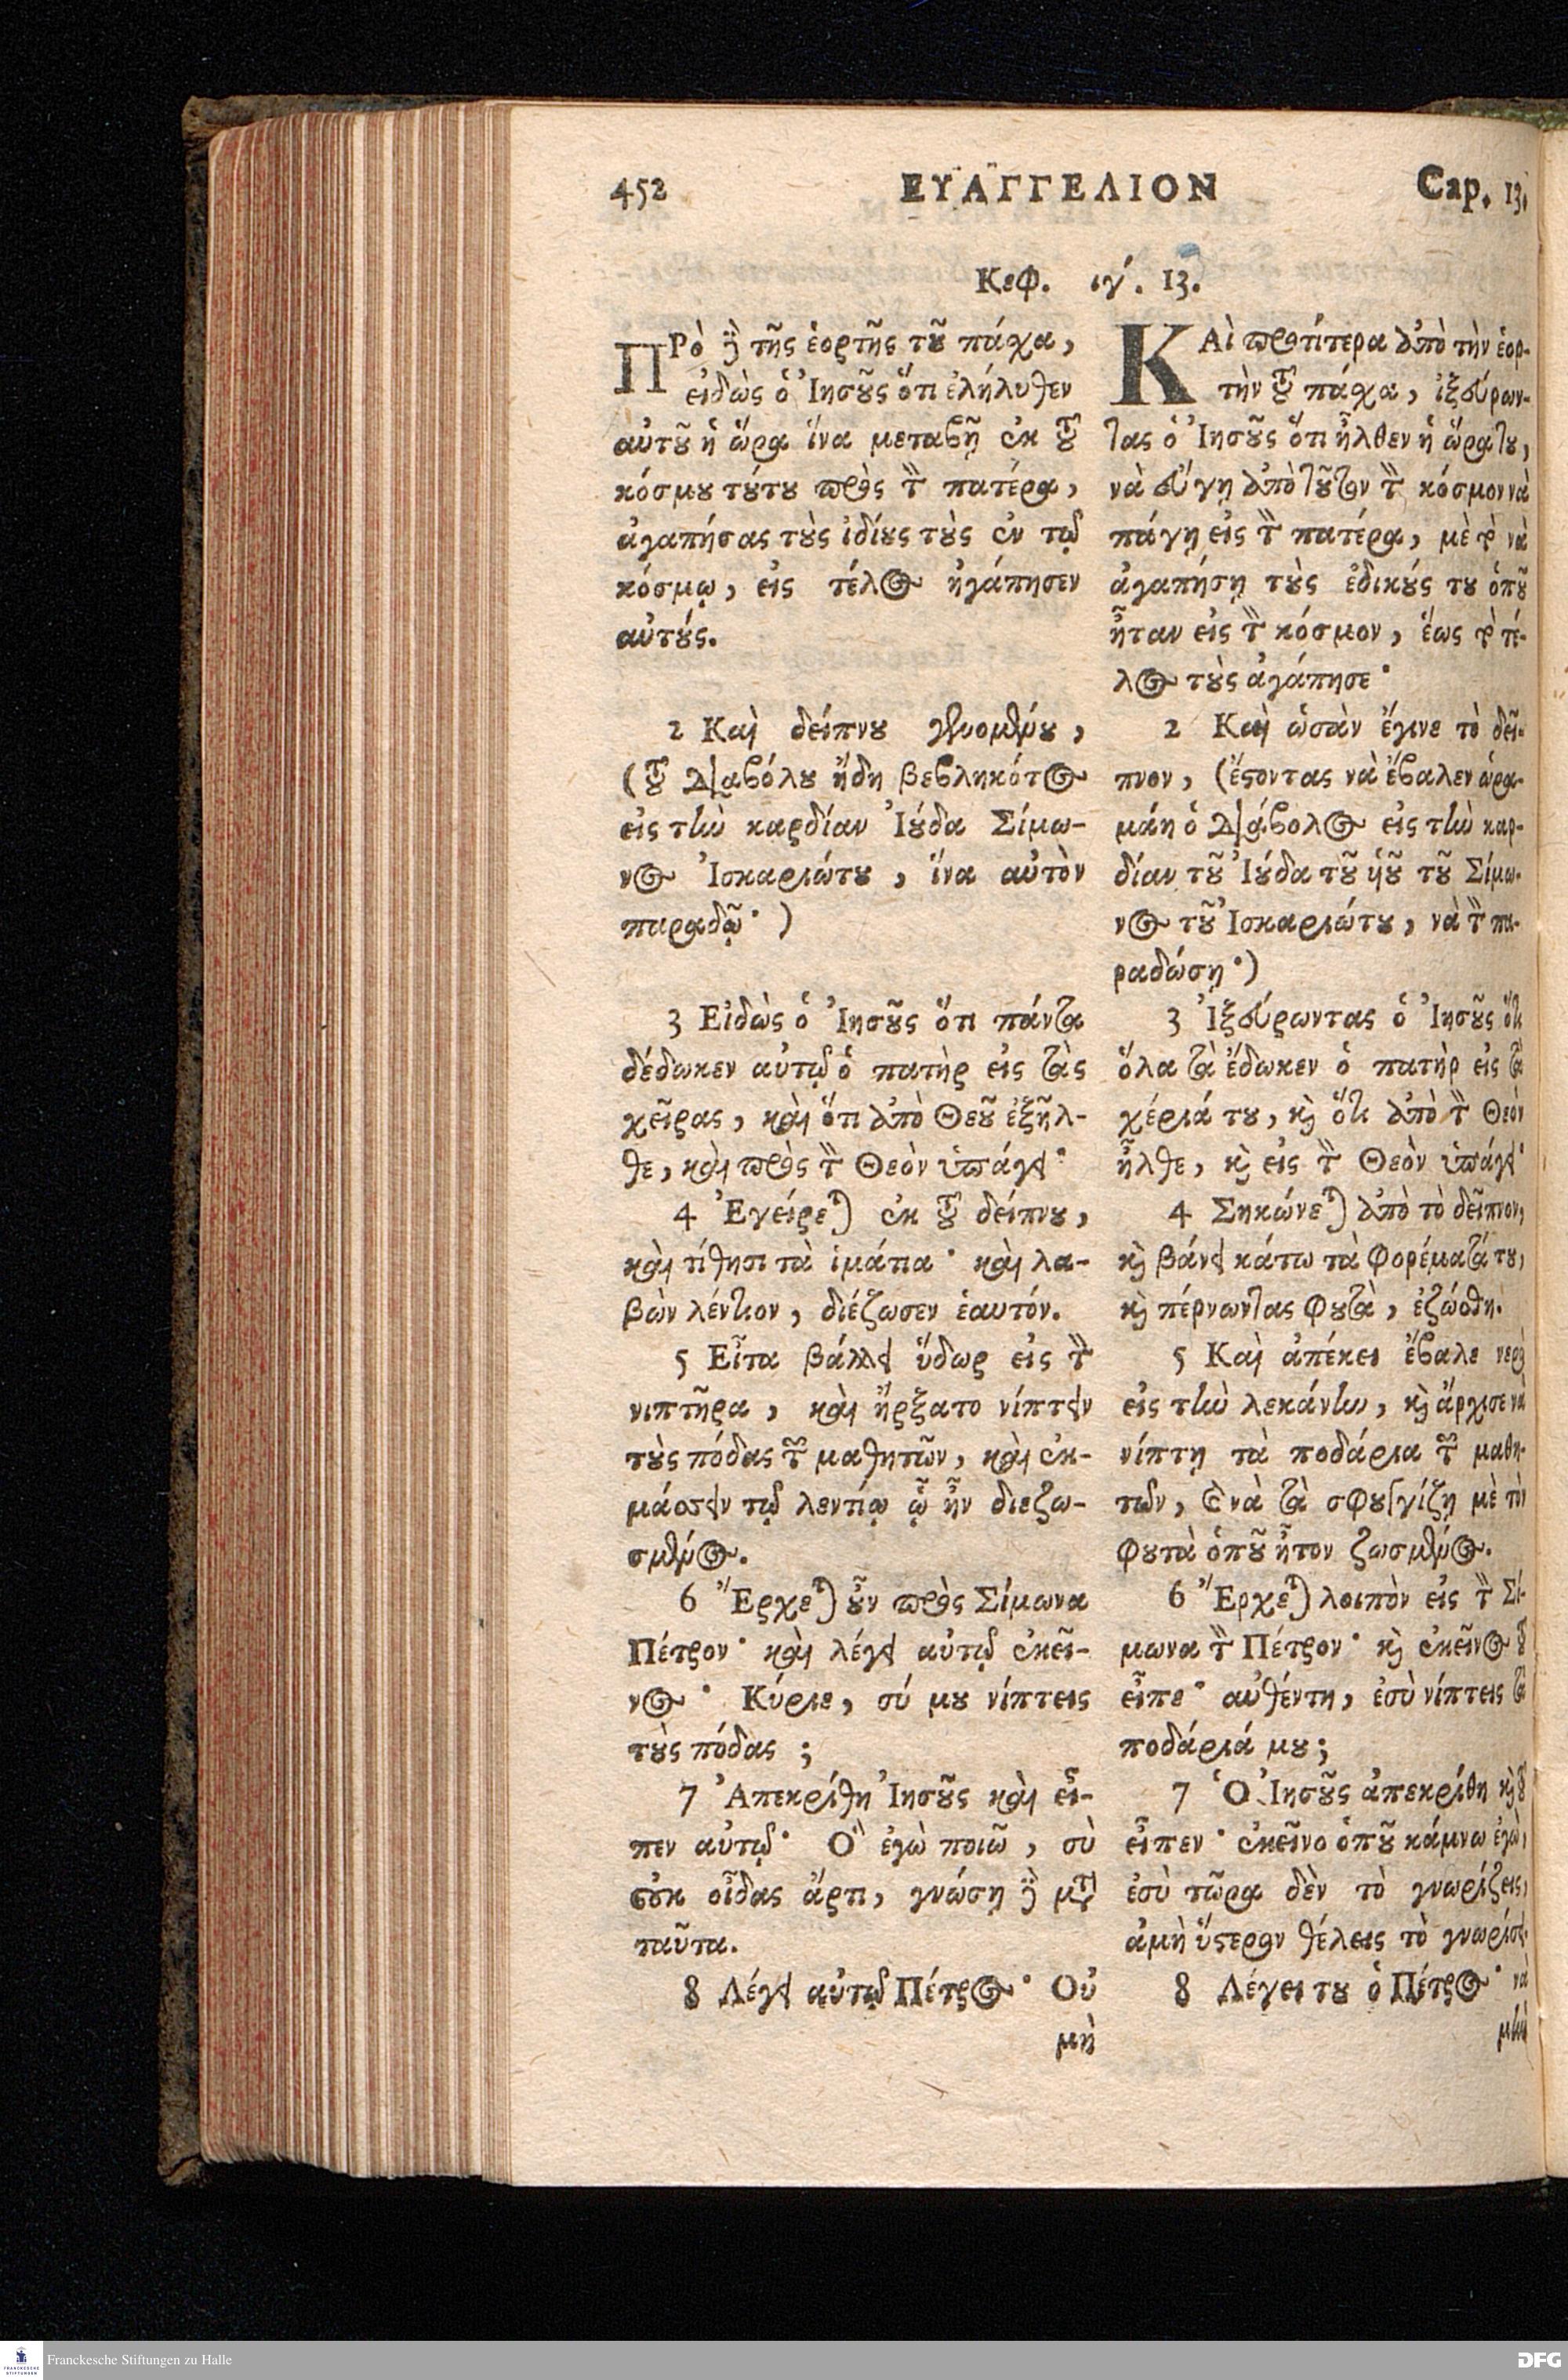 452 ΕΥΑΓΓΕΛΙΟΝ Cap. 13.
Κεφ. ιγ΄. 13.
ΠΡὸ ἢ τῆς ἑορτῆς τοῦ πάχα,
εἰδὼς ὁ Ἰησοῦς ὅτι ἐλήλυθεν
αὐτοῦ ἡ ὥρα ἵνα μεταβῇ ἐκ τοῦ
κόσμου τούτου πρὸς τὸν πατέρα,
ἀγαπήσας τοὺς ἰδίους τοὺς ἐν τῷ
κόσμῳ, εἰς τέλος ἠγάπησεν
αὐτούς.
2 Καὶ δείπνου γενομένου,
(τοῦ Διαβόλου ἤδη βεβληκότος
εἰς τὴν καρδίαν Ἰούδα Σίμω-
νος Ἰσκαριώτου, ἵνα αὐτὸν
παραδῷ·)
3 Εἰδὼς ὁ Ἰησοῦς ὅτι πάντα
δέδωκεν αὐτῷ ὁ πατὴρ εἰς τὰς
χεῖρας, καὶ ὅτι ἀπὸ Θεοῦ ἐξῆλ-
θε, καὶ πρὸς τὸν Θεὸν ὑπάγει·
4 Ἐγείρεται ἐκ τοῦ δείπνου,
καὶ τίθησι τὰ ἱμάτια· καὶ λα-
βὼν λέντιον, διέζωσεν ἑαυτόν.
5 Εἶτα βάλλει ὕδωρ εἰς τὸν
νιπτῆρα, καὶ ἤρξατο νίπτειν
τοὺς πόδας τῶν μαθητῶν, καὶ ἐκ-
μάσσειν τῷ λεντίῳ ᾧ ἦν διεζω-
σμένος.
6 Ἔρχεται οὖν πρὸς Σίμωνα
Πέτρον· καὶ λέγει αὐτῷ ἐκεῖ-
νος· Κύριε, σύ μου νίπτεις
τοὺς πόδας;
7 Ἀπεκρίθη Ἰησοῦς καὶ εἶ-
πεν αὐτῷ· Ὃ ἐγὼ ποιῶ, σὺ
οὐκ οἶδας ἄρτι, γνώσῃ δὲ μετὰ
ταῦτα.
8 Λέγει αὐτῷ Πέτρος· Οὐ
μὴ
ΚΑὶ προτίτερα ἀπὸ τὴν ἑορ-
τὴν τοῦ πάχα, ἰξεύρων-
τας ὁ Ἰησοῦς ὅτι ἦλθεν ἡ ὥρα του,
νὰ εὔγῃ ἀπὸ τοῦτον τὸν κόσμον νὰ
πάγῃ εἰς τὸν πατέρα, μὲ τὸ νὰ
ἀγαπήσῃ τοὺς ἐδικούς του ὁποῦ
ἦταν εἰς τὸν κόσμον, ἕως τὸ τέ-
λος τοὺς ἀγάπησε·
2 Καὶ ὡσὰν ἔγινε τὸ δεῖ-
πνον, (ἔστοντας νὰ ἔβαλεν ὡρα-
μάη ὁ Διάβολος εἰς τὴν καρ-
δίαν τοῦ Ἰούδα τοῦ ὑιοῦ τοῦ Σίμω-
νος τοῦ Ἰσκαριώτου, νὰ τὸν πα-
ραδώσῃ·)
3 Ἰξεύρωντας ὁ Ἰησοῦς ὅτι
ὅλα τὰ ἔδωκεν ὁ πατὴρ εἰς τὰ
χέριά του, καὶ ὅτι ἀπὸ τὸν Θεὸν
ἦλθε, καὶ εἰς τὸν Θεὸν ὑπάγει·
4 Σηκώνεται ἀπὸ τὸ δεῖπνον,
καὶ βάνει κάτω τὰ φορέματά του,
καὶ πέρνωντας φουτὰ, ἐζώσθη.
5 Καὶ ἀπέκει ἔβαλε νερὸ
εἰς τὴν λεκάνην, καὶ ἄρχισε νὰ
νίπτῃ τὰ ποδάρια τῶν μαθη-
τῶν, καὶ νὰ τὰ σφουγγίζῃ μὲ τὸν
φουτὰ ὁποῦ ἦτον ζωσμένος.
6 Ἔρχεται λοιπὸν εἰς τὸν Σί-
μωνα τὸν Πέτρον· καὶ ἐκεῖνος τοῦ
εἶπε· αὐθέντη, ἐσὺ νίπτεις τὰ
ποδάριά μου;
7 Ὁ Ἰησοῦς ἀπεκρίθη καὶ τοῦ
εἶπεν· ἐκεῖνο ὁποῦ κάμνω ἐγὼ,
ἐσὺ τῶρα δὲν τὸ γνωρίζεις,
ἀμὴ ὕστερον θέλεις τὸ γνωρίσει.
8 Λέγει του ὁ Πέτρος· νὰ
μὴν
Franckesche Stiftungen zu Halle
DFG